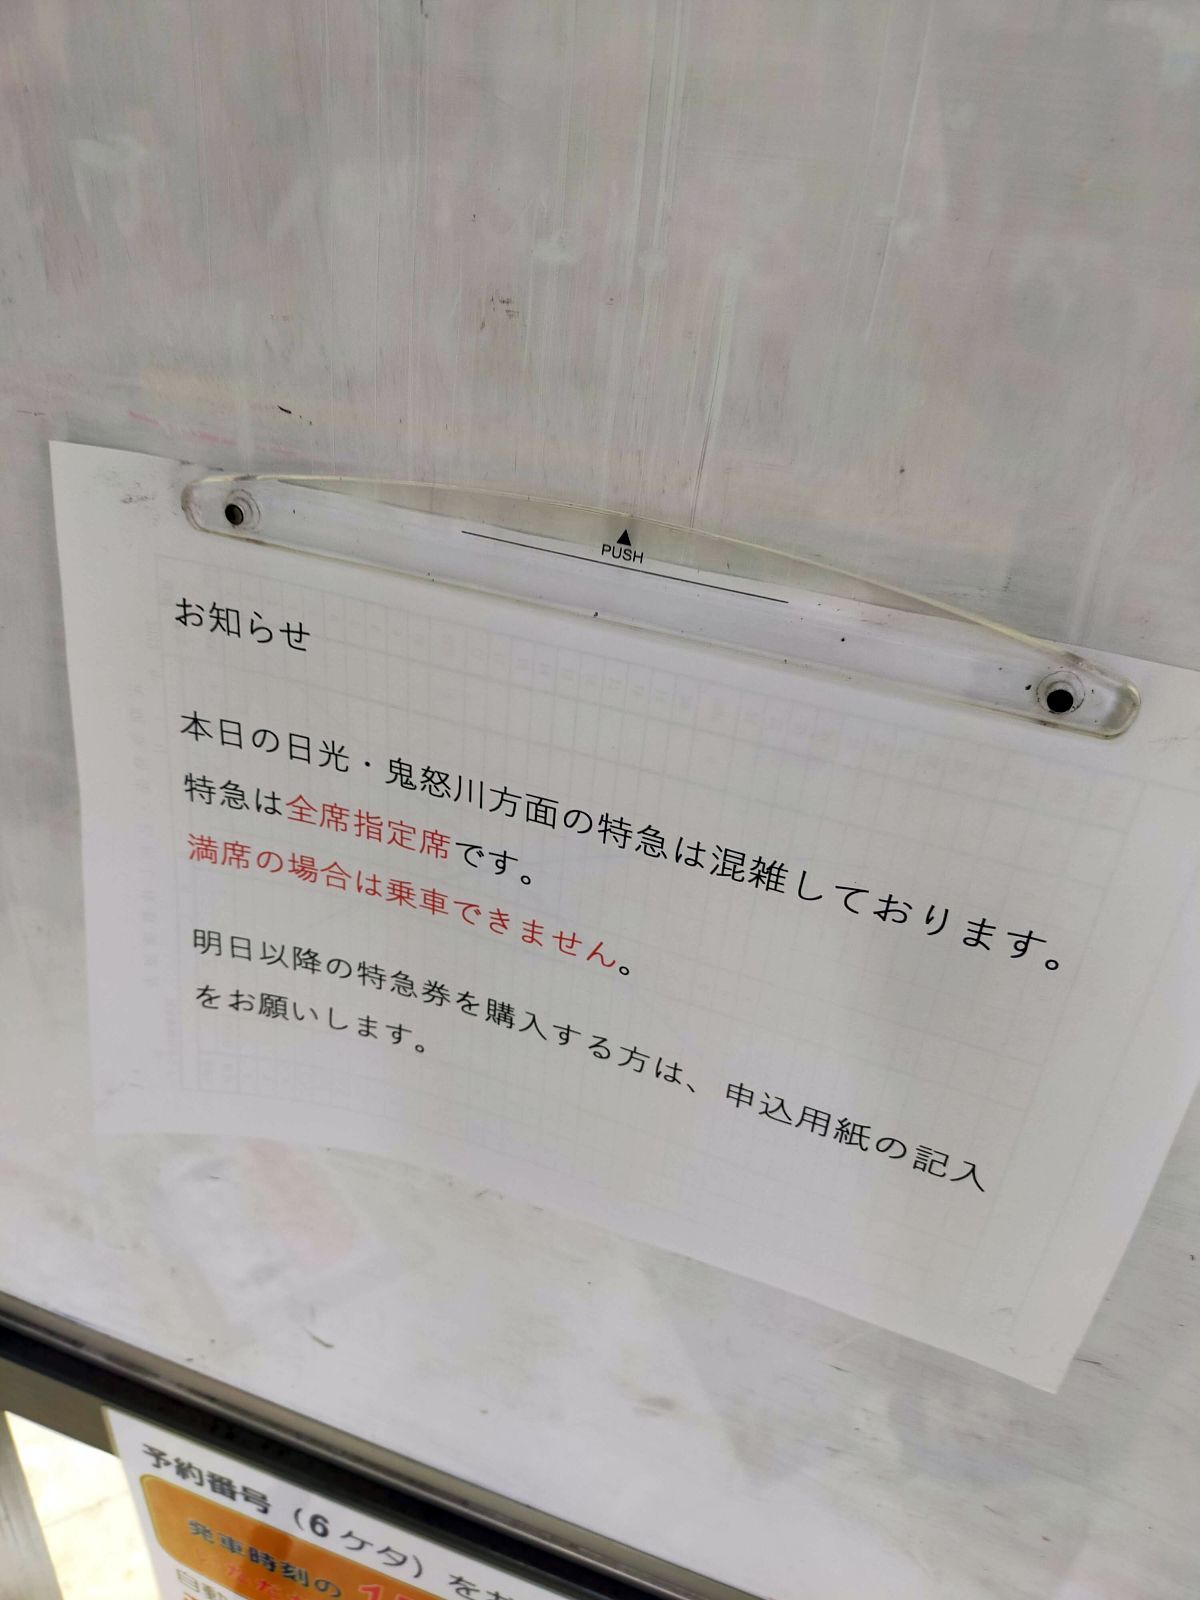 ▲
PUSH
お知らせ
本日の日光・鬼怒川方面の特急は混雑しております。
特急は全席指定席です。
満席の場合は乗車できません。
明日以降の特急券を購入する方は、申込用紙の記入
をお願いします。
予約番号（6ケタ）をお
発車時刻の
自動